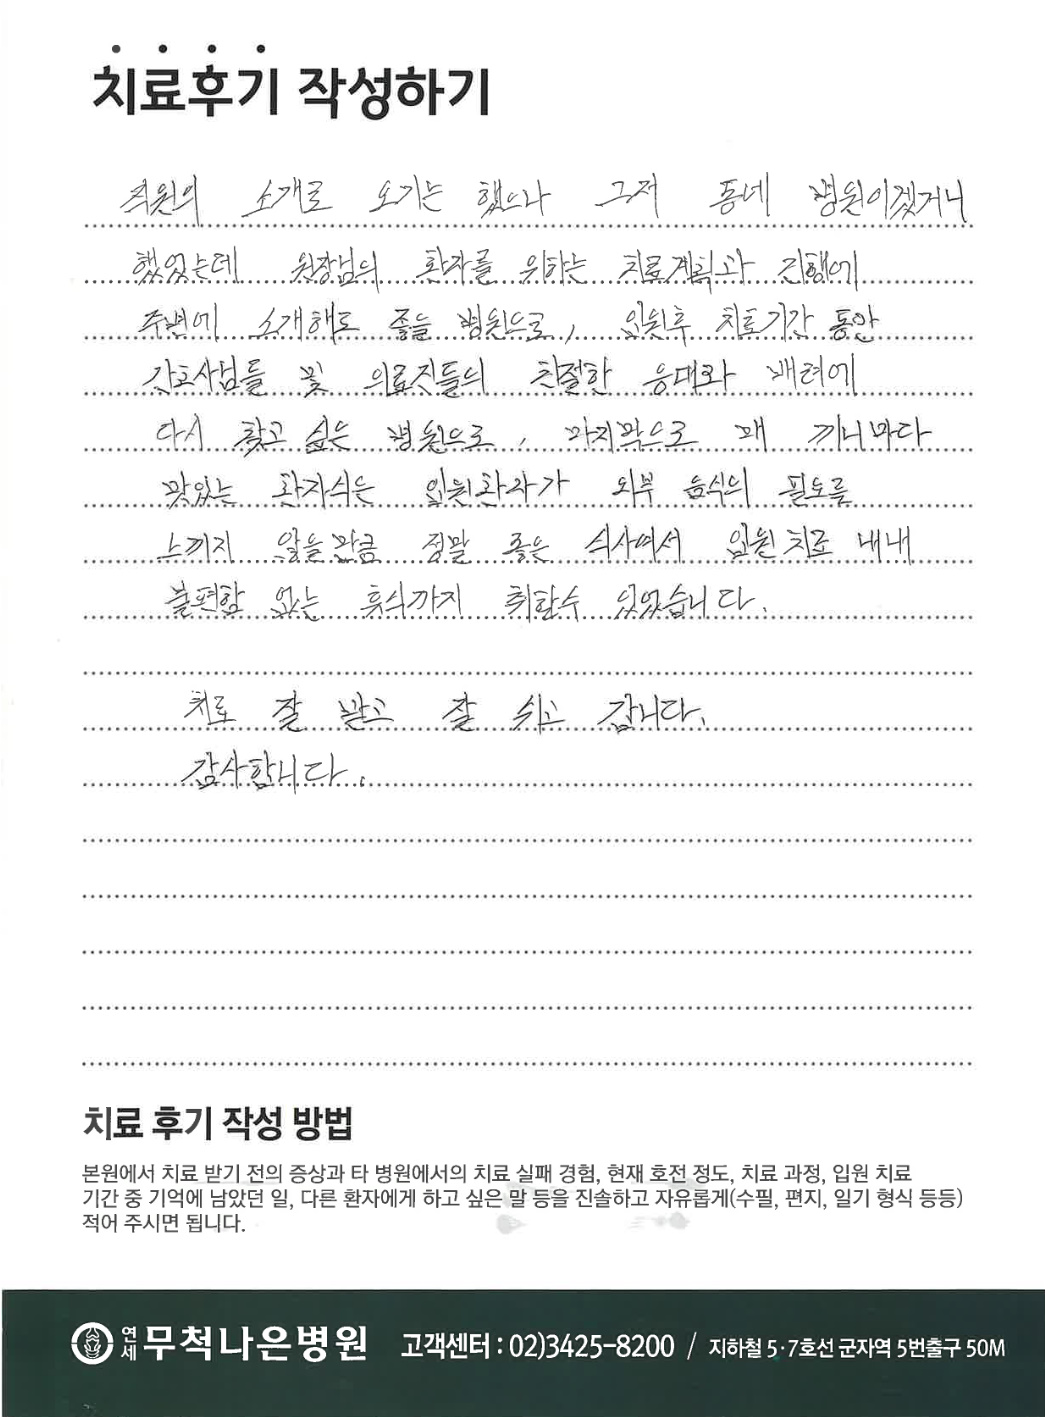 치료후기 작성하기
직원의 소개로 오기는 했으나 그저 동네 병원이겠거니
했었는데 원장님의 환자를 위하는 치료계획과 진행에
주변에 소개해도 좋을 병원으로, 입원후 치료기간 동안
간호사님들 및 의료진들의 친절한 응대와 배려에
다시 찾고 싶은 병원으로, 마지막으로 매 끼니마다
맛있는 환자식은 입원환자가 외부 음식의 필요를
느끼지 않을만큼 정말 좋은 식사여서 입원치료 내내
불편함 없는 휴식까지 취할수 있었습니다.
치료 잘 받고 잘 쉬고 갑니다.
감사합니다.
치료 후기 작성 방법
본원에서 치료 받기 전의 증상과 타 병원에서의 치료 실패 경험, 현재 호전 정도, 치료 과정, 입원 치료
기간 중 기억에 남았던 일, 다른 환자에게 하고 싶은 말 등을 진솔하고 자유롭게(수필, 편지, 일기 형식 등등)
적어 주시면 됩니다.
연세 무척나은병원 고객센터 : 02)3425-8200 / 지하철 5·7호선 군자역 5번출구 50M